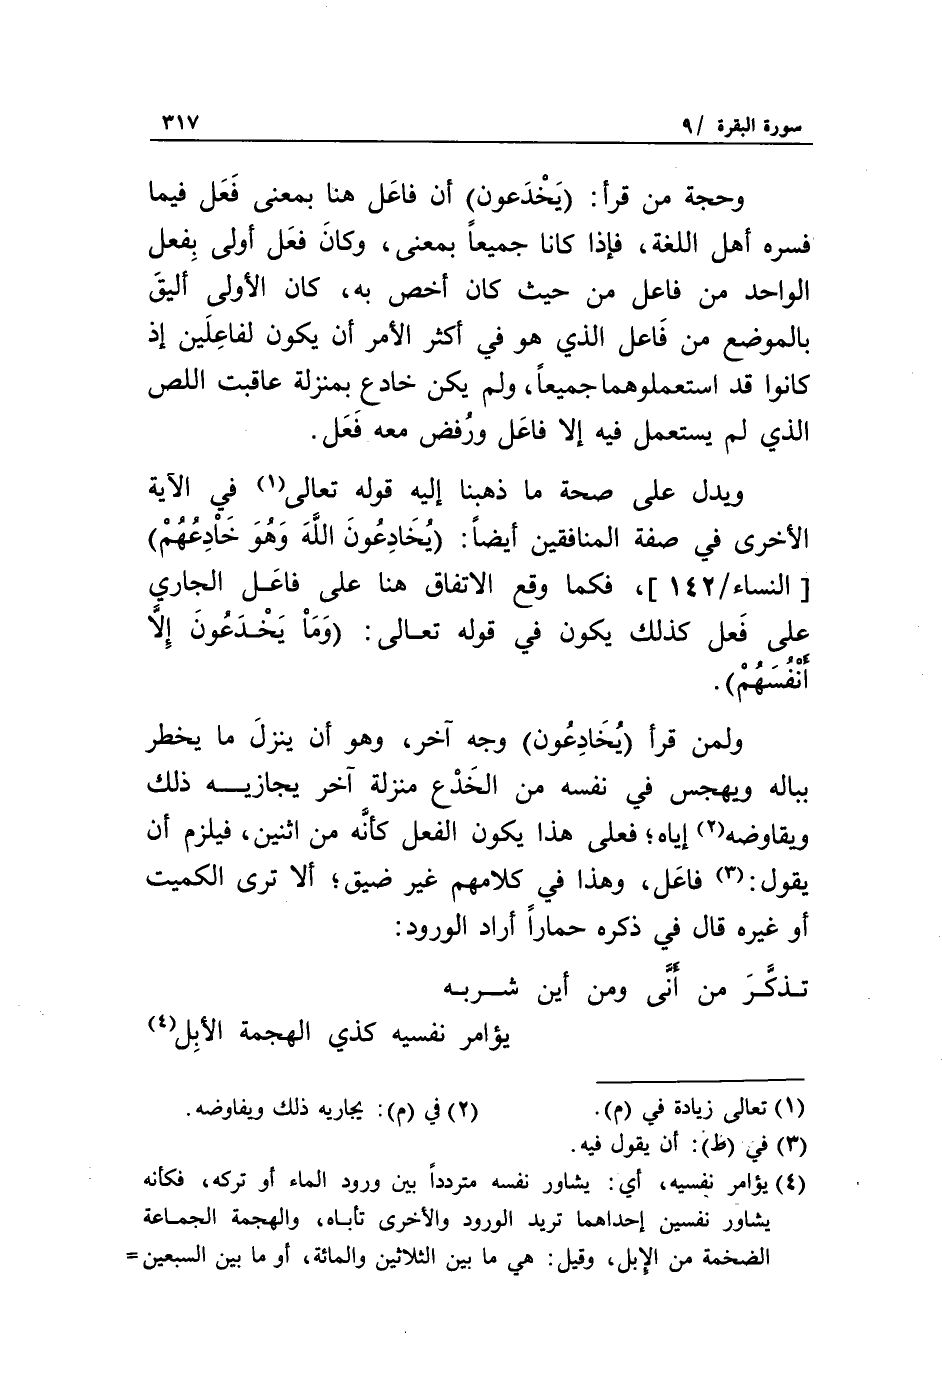 سورة البقرة /٩ ٣١٧
وحجة من قرأ: (يَخْدَعون) أن فاعَل هنا بمعنى فَعَل فيما
فسره أهل اللغة، فإذا كانا جميعاً بمعنى، وكانَ فعَل أولى بِفعل
الواحد من فاعل من حيث كان أخص به، كان الأولى أليقَ
بالموضع من فَاعل الذي هو في أكثر الأمر أن يكون لفاعِلَين إذ
كانوا قد استعملوهما جميعاً، ولم يكن خادع بمنزلة عاقبت اللص
الذي لم يستعمل فيه إلا فاعَل ورُفض معه فَعَل.
ويدل على صحة ما ذهبنا إليه قوله تعالى(١) في الآية
الأخرى في صفة المنافقين أيضاً: (يُخَادِعُونَ اللَّهَ وَهُوَ خَاْدِعُهُمْ)
[النساء/١٤٢]، فكما وقع الاتفاق هنا على فاعَـل الجاري
على فَعل كذلك يكون في قوله تعـالى: (وَمَاْ يَخْـدَعُونَ إِلَّا
أَنْفُسَهُمْ).
ولمن قرأ (يُخَادِعُون) وجه آخر، وهو أن ينزلَ ما يخطر
بباله ويهجس في نفسه من الخَدْع منزلة آخر يجازيـــه ذلك
ويقاوضه(٢) إياه؛ فعلى هذا يكون الفعل كأنَّه من اثنين، فيلزم أن
يقول:(٣) فاعَل، وهذا في كلامهم غير ضيق؛ ألا ترى الكميت
أو غيره قال في ذكره حماراً أراد الورود:
تـذكَّـرَ من أَنَّى ومن أين شـــربـه
يؤامر نفسيه كذي الهجمة الأبِل(٤)
(١) تعالى زيادة في (م). (٢) في (م): يجاريه ذلك ويفاوضه.
(٣) في (ط): أن يقول فيه.
(٤) يؤامر نفسيه، أي: يشاور نفسه متردداً بين ورود الماء أو تركه، فكأنه
يشاور نفسين إحداهما تريد الورود والأخرى تأبـاه، والهجمة الجمـاعة
الضخمة من الإبل، وقيل: هي ما بين الثلاثين والمائة، أو ما بين السبعين=